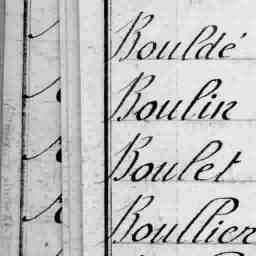 Bouldé
Boulin
Boulet
Boullier